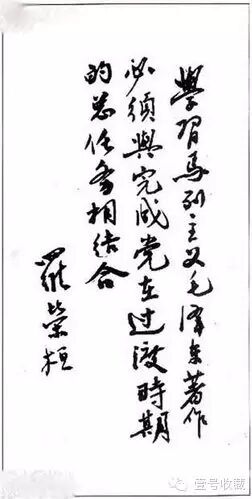 學習馬列主义毛澤东著作
必須與完成党在过渡時期
的总任务相结合
羅榮桓
壹号收藏